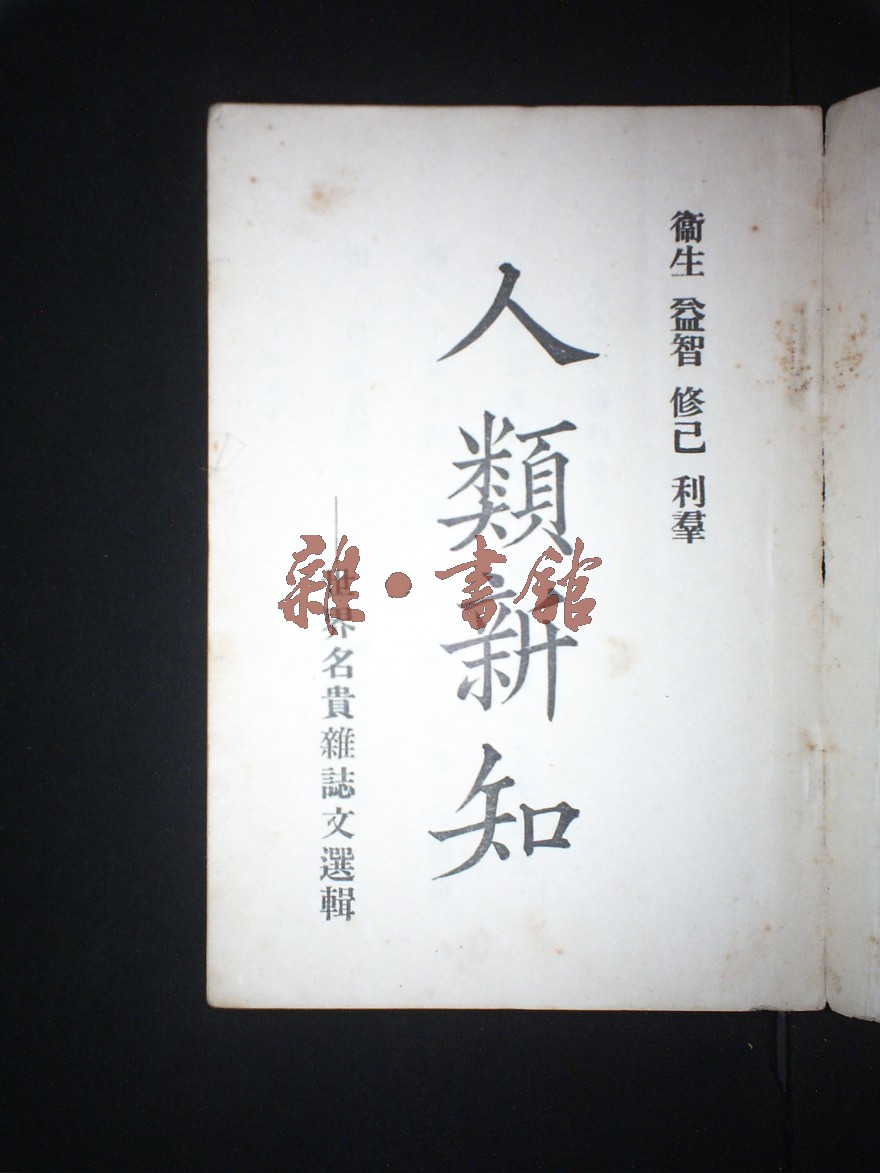 衞生 益智 修己 利羣
人類新知
——世界名貴雜誌文選輯
雜·書館